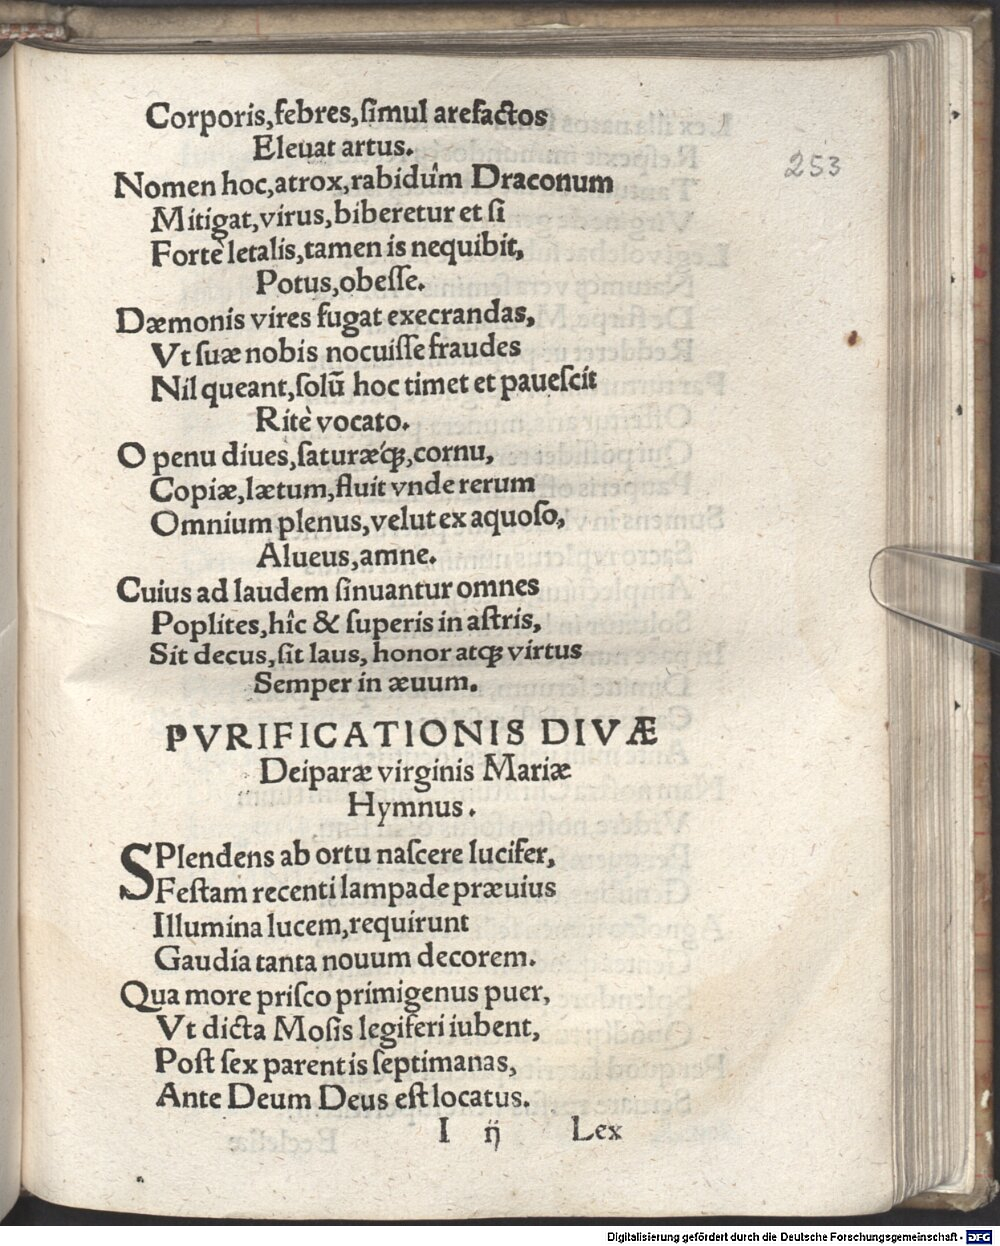 Corporis,febres,ſimul arefactos
Eleuat artus.
Nomen hoc,atrox,rabidûm Draconum
Mitigat,virus,biberetur et ſi
Fortè letalis,tamen is nequibit,
Potus,obeſſe.
Dæmonis vires fugat execrandas,
Vt ſuæ nobis nocuiſſe fraudes
Nil queant,ſolũ hoc timet et paueſcit
Ritè vocato.
O penu diues,ſaturæq́ꝫ,cornu,
Copiæ,lætum,fluit vnde rerum
Omnium plenus,velut ex aquoſo,
Alueus,amne.
Cuius ad laudem ſinuantur omnes
Poplites,hîc & ſuperis in aſtris,
Sit decus,ſit laus, honor atqꝫ virtus
Semper in æuum.
PVRIFICATIONIS DIVÆ
Deiparæ virginis Mariæ
Hymnus.
SPlendens ab ortu naſcere lucifer,
Feſtam recenti lampade præuius
Illumina lucem,requirunt
Gaudia tanta nouum decorem.
Qua more priſco primigenus puer,
Vt dicta Moſis legiferi iubent,
Poſt ſex parentis ſeptimanas,
Ante Deum Deus eſt locatus.
I ij Lex
253
Digitalisierung gefördert durch die Deutsche Forschungsgemeinschaft - DFG